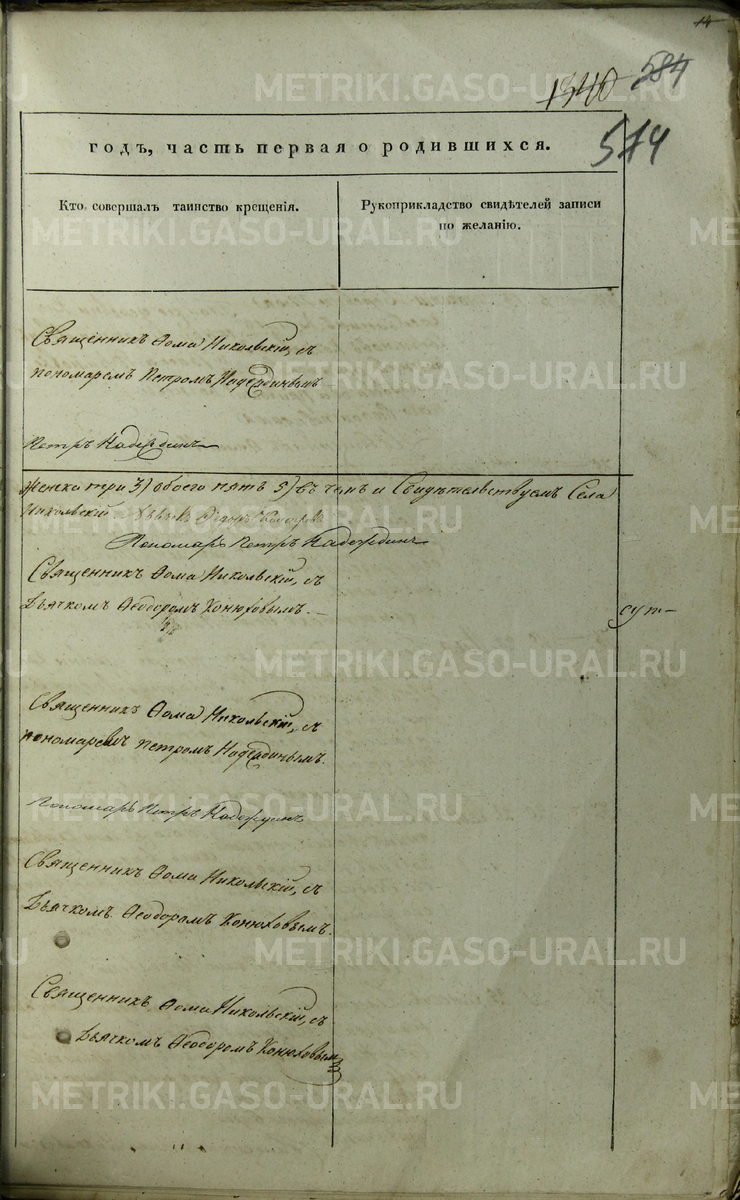 14
1340 584
574
годъ, часть первая о родившихся.
Кто совершалъ таинство крещенія.
Рукоприкладство свидѣтелей записи по желанію.
Священникъ Ѳома Никольскій, съ
пономаремъ Петромъ Надеждинымъ
Петръ Надеждинъ
Женска три 3) обоего пять 5) въ чемъ и Свидѣтельствуемъ Села
Никольскій
Пономарь Петръ Надеждинъ
Священникъ Ѳома Никольскій, съ
Дьячкомъ Ѳеодоромъ Конюховымъ.
сут-
Священникъ Ѳома Никольскій, съ
пономаремъ Петромъ Надеждинымъ.
Пономарь Петръ Надеждинъ
Священникъ Ѳома Никольскій, съ
Дьячкомъ Ѳеодоромъ Конюховымъ.
Священникъ Ѳома Никольскій, съ
Дьячкомъ Ѳеодоромъ Конюховымъ
METRIKI.GASO-URAL.RU